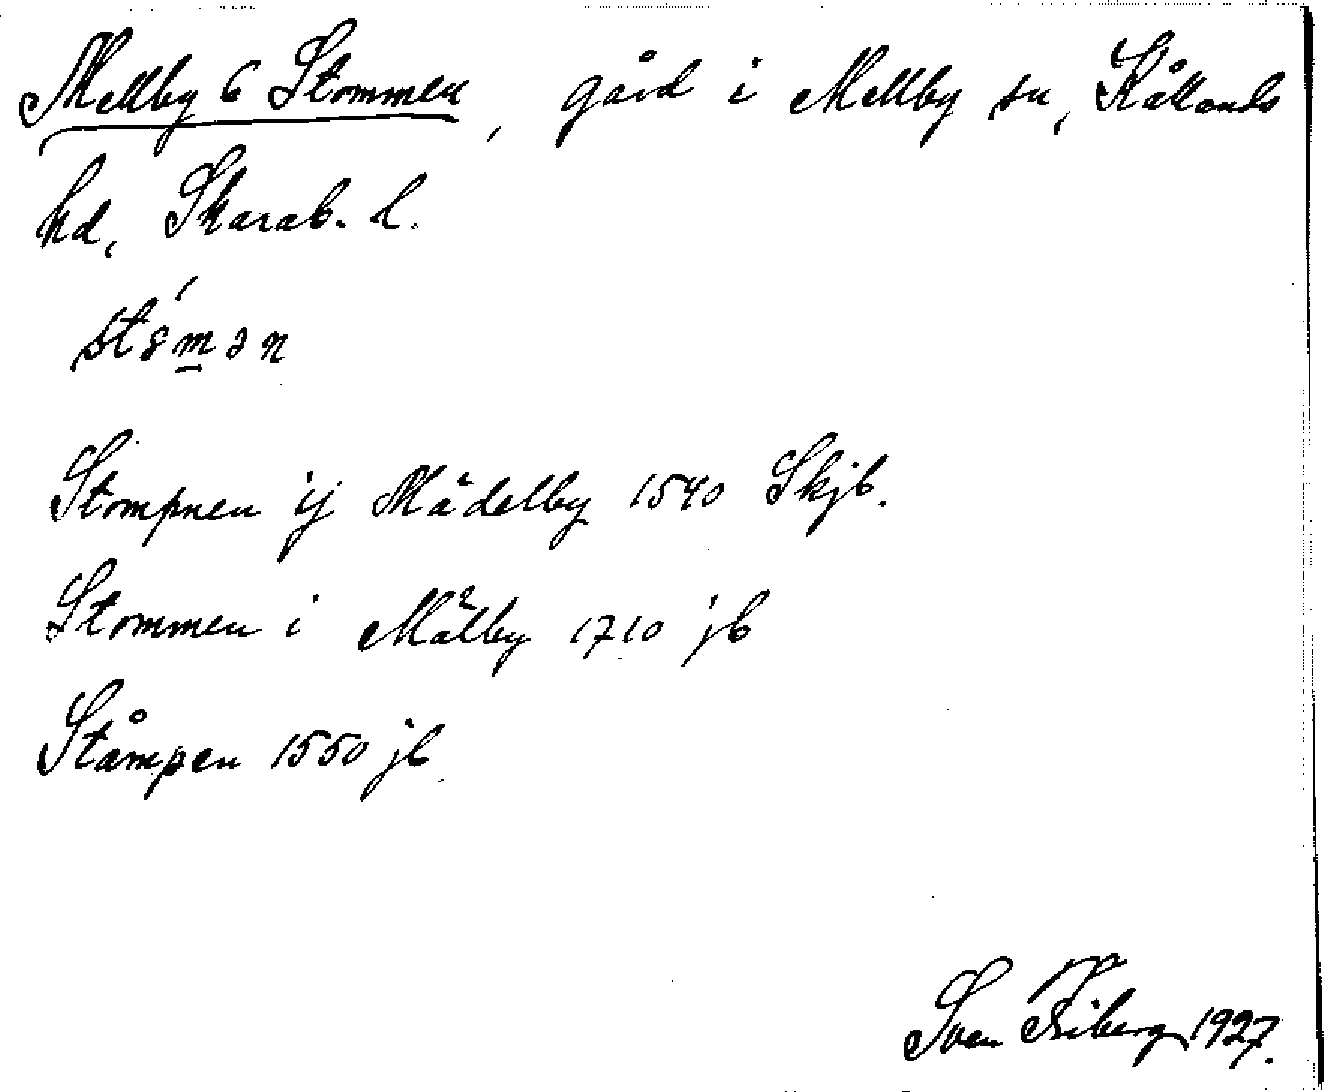 Mellby 6 Stommen, gård i Mellby sn, Kållands
hd, Skarab. l.
stómən
Stompnen ij Mädelby 1540 Skjb.
Stommen i Mälby 1710 jb
Ståmpen 1550 jb
Sven Friberg 1927.